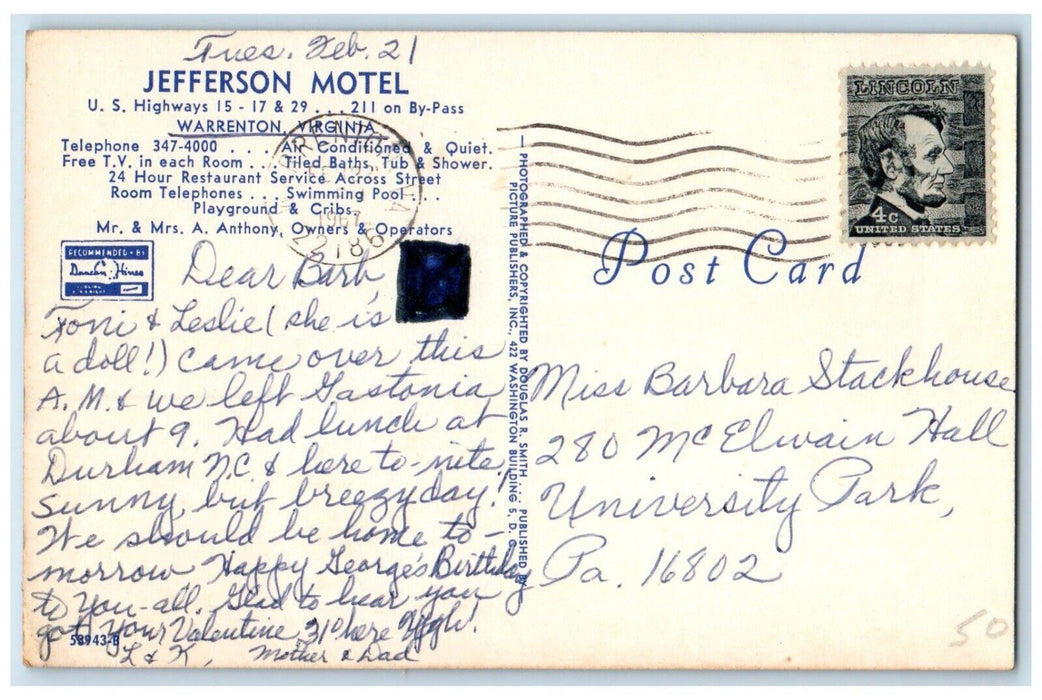 Tues. Feb. 21
JEFFERSON MOTEL
U. S. Highways 15 - 17 & 29 . . . 211 on By-Pass
WARRENTON, VIRGINIA
Telephone 347-4000 . . . Air Conditioned & Quiet.
Free T.V. in each Room . . . Tiled Baths, Tub & Shower.
24 Hour Restaurant Service Across Street
Room Telephones . . . Swimming Pool . . .
Playground & Cribs.
Mr. & Mrs. A. Anthony, Owners & Operators
RECOMMENDED • BY
Duncan Hines
Dear Barb,
Toni & Leslie (she is
a doll!) came over this
A.M. & we left Gastonia
about 9. Had lunch at
Durham N.C. & here to-nite.
Sunny but breezy day!
We should be home to-
morrow Happy George's Birthday
to you-all. Glad to hear you
got your Valentine, 31° here Ugh!
53943-B
L & K, Mother & Dad
1967
22186
PHOTOGRAPHED & COPYRIGHTED BY DOUGLAS R. SMITH . . . PUBLISHED BY
PICTURE PUBLISHERS, INC., 422 WASHINGTON BUILDING 5, D. C.
LINCOLN
4c
UNITED STATES
Post Card
Miss Barbara Stackhouse
280 McElwain Hall
University Park,
Pa. 16802
50